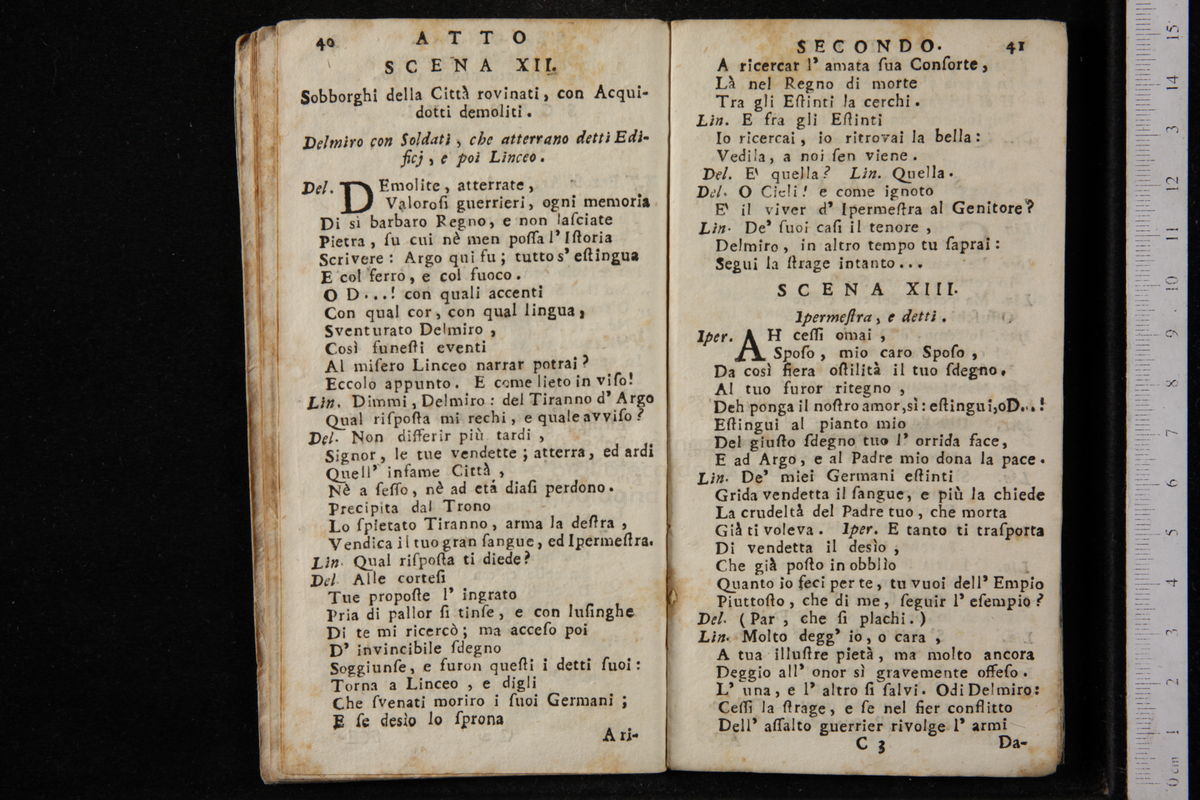 40
ATTO
SCENA XII.
Sobborghi della Città rovinati, con Acqui-
dotti demoliti.
Delmiro con Soldati, che atterrano detti Edi-
ficj, e poi Linceo.
Del. DEmolite, atterrate,
Valoroſi guerrieri, ogni memoria
Di sì barbaro Regno, e non laſciate
Pietra, ſu cui nè men poſſa l' Iſtoria
Scrivere: Argo qui fu; tutto s' eſtingua
E col ferro, e col fuoco.
O D...! con quali accenti
Con qual cor, con qual lingua,
Sventurato Delmiro,
Così funeſti eventi
Al miſero Linceo narrar potrai?
Eccolo appunto. E come lieto in viſo!
Lin. Dimmi, Delmiro: del Tiranno d' Argo
Qual riſpoſta mi rechi, e quale avviſo?
Del. Non differir più tardi,
Signor, le tue vendette; atterra, ed ardi
Quell' infame Città,
Nè a ſeſſo, nè ad etá diaſi perdono.
Precipita dal Trono
Lo ſpietato Tiranno, arma la deſtra,
Vendica il tuo gran ſangue, ed Ipermeſtra.
Lin. Qual riſpoſta ti diede?
Del. Alle corteſi
Tue propoſte l' ingrato
Pria di pallor ſi tinſe, e con luſinghe
Di te mi ricercò; ma acceſo poi
D' invincibile ſdegno
Soggiunſe, e furon queſti i detti ſuoi:
Torna a Linceo, e digli
Che ſvenati moriro i ſuoi Germani;
E ſe desìo lo ſprona
A ri-
SECONDO.
41
A ricercar l' amata ſua Conſorte,
Là nel Regno di morte
Tra gli Eſtinti la cerchi.
Lin. E fra gli Eſtinti
Io ricercai, io ritrovai la bella:
Vedila, a noi ſen viene.
Del. E' quella? Lin. Quella.
Del. O Cieli! e come ignoto
E' il viver d' Ipermeſtra al Genitore?
Lin. De' ſuoi caſi il tenore,
Delmiro, in altro tempo tu ſaprai:
Segui la ſtrage intanto...
SCENA XIII.
Ipermeſtra, e detti.
Iper. AH ceſſi omai,
Spoſo, mio caro Spoſo,
Da così fiera oſtilità il tuo ſdegno.
Al tuo furor ritegno,
Deh ponga il noſtro amor, sì: eſtingui, o D...!
Eſtingui al pianto mio
Del giuſto ſdegno tuo l' orrida face,
E ad Argo, e al Padre mio dona la pace.
Lin. De' miei Germani eſtinti
Grida vendetta il ſangue, e più la chiede
La crudeltà del Padre tuo, che morta
Già ti voleva. Iper. E tanto ti traſporta
Di vendetta il desìo,
Che già poſto in obblìo
Quanto io feci per te, tu vuoi dell' Empio
Piuttoſto, che di me, ſeguir l' eſempio?
Del. (Par, che ſi plachi.)
Lin. Molto degg' io, o cara,
A tua illuſtre pietà, ma molto ancora
Deggio all' onor sì gravemente offeſo.
L' una, e l' altro ſi ſalvi. Odi Delmiro:
Ceſſi la ſtrage, e ſe nel fier conflitto
Dell' aſſalto guerrier rivolge l' armi
C 3
Da-
0 cm 1 2 3 4 5 6 7 8 9 10 11 12 13 14 15